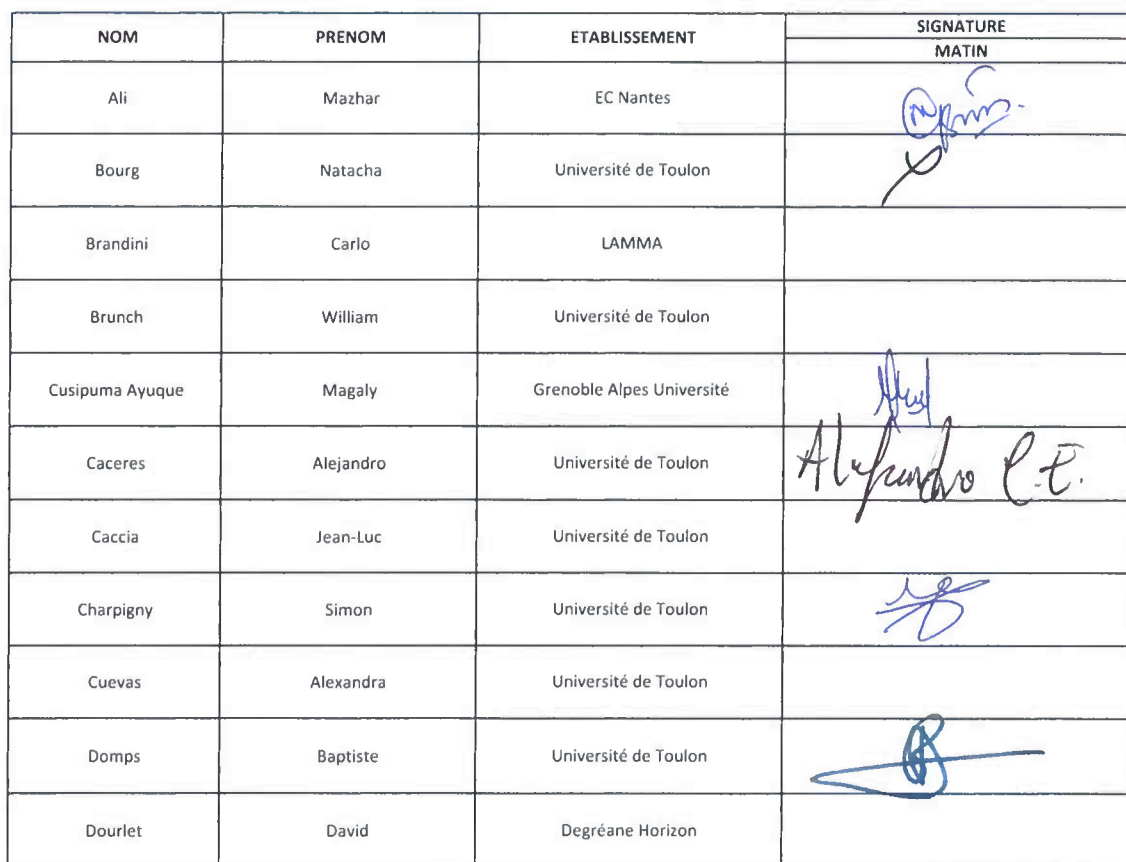 NOM PRENOM ETABLISSEMENT SIGNATURE
MATIN
Ali Mazhar EC Nantes
Bourg Natacha Université de Toulon
Brandini Carlo LAMMA
Brunch William Université de Toulon
Cusipuma Ayuque Magaly Grenoble Alpes Université
Caceres Alejandro Université de Toulon Alejandro C.E.
Caccia Jean-Luc Université de Toulon
Charpigny Simon Université de Toulon
Cuevas Alexandra Université de Toulon
Domps Baptiste Université de Toulon
Dourlet David Degréane Horizon